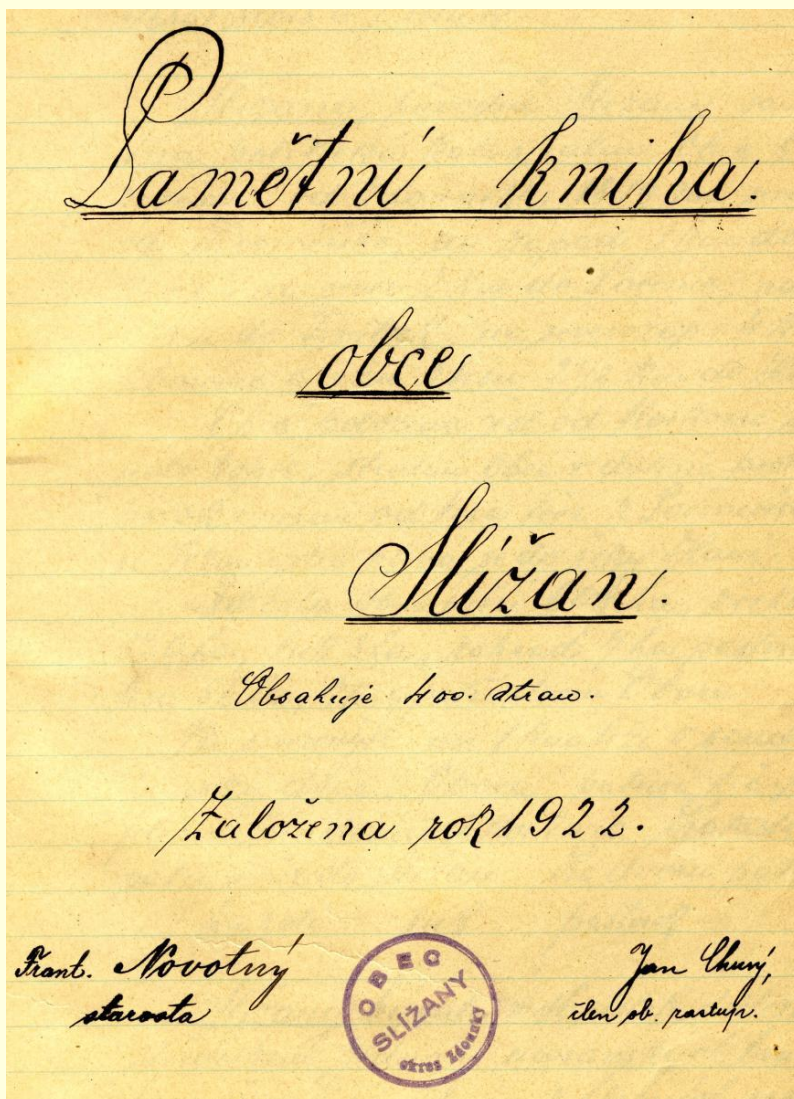 Pamětní kniha.
obce
Slížan.
Obsahuje 400. stran.
Založena rok 1922.
Frant. Novotný
starosta
OBEC
SLÍŽANY
okres Zdounky
Jan Chury,
člen ob. zastup.